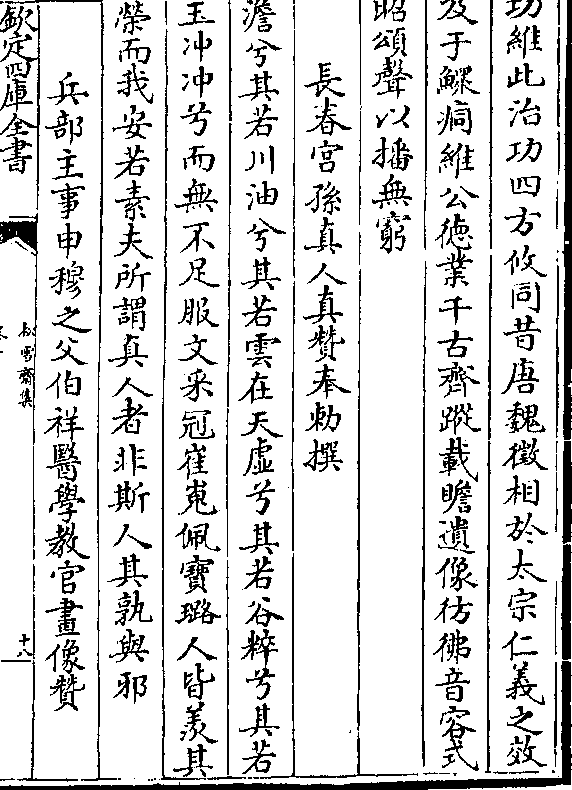 功維此治功四方攸同昔唐魏徵相於太宗仁義之效
及于鰥痌維公徳業千古齊蹤載瞻遺像彷彿音容式
昭頌聲以播無窮
長春宮孫真人真贊奉勅撰
澹兮其若川油兮其若雲在天虛兮其若谷粹兮其若
玉冲冲兮而無不足服文采冠崔嵬佩寶璐人皆羨其
榮而我安若素夫所謂真人者非斯人其孰與邪
兵部主事申穆之父伯祥醫學教官畫像贊
欽定四庫全書
松雪齋集
十八